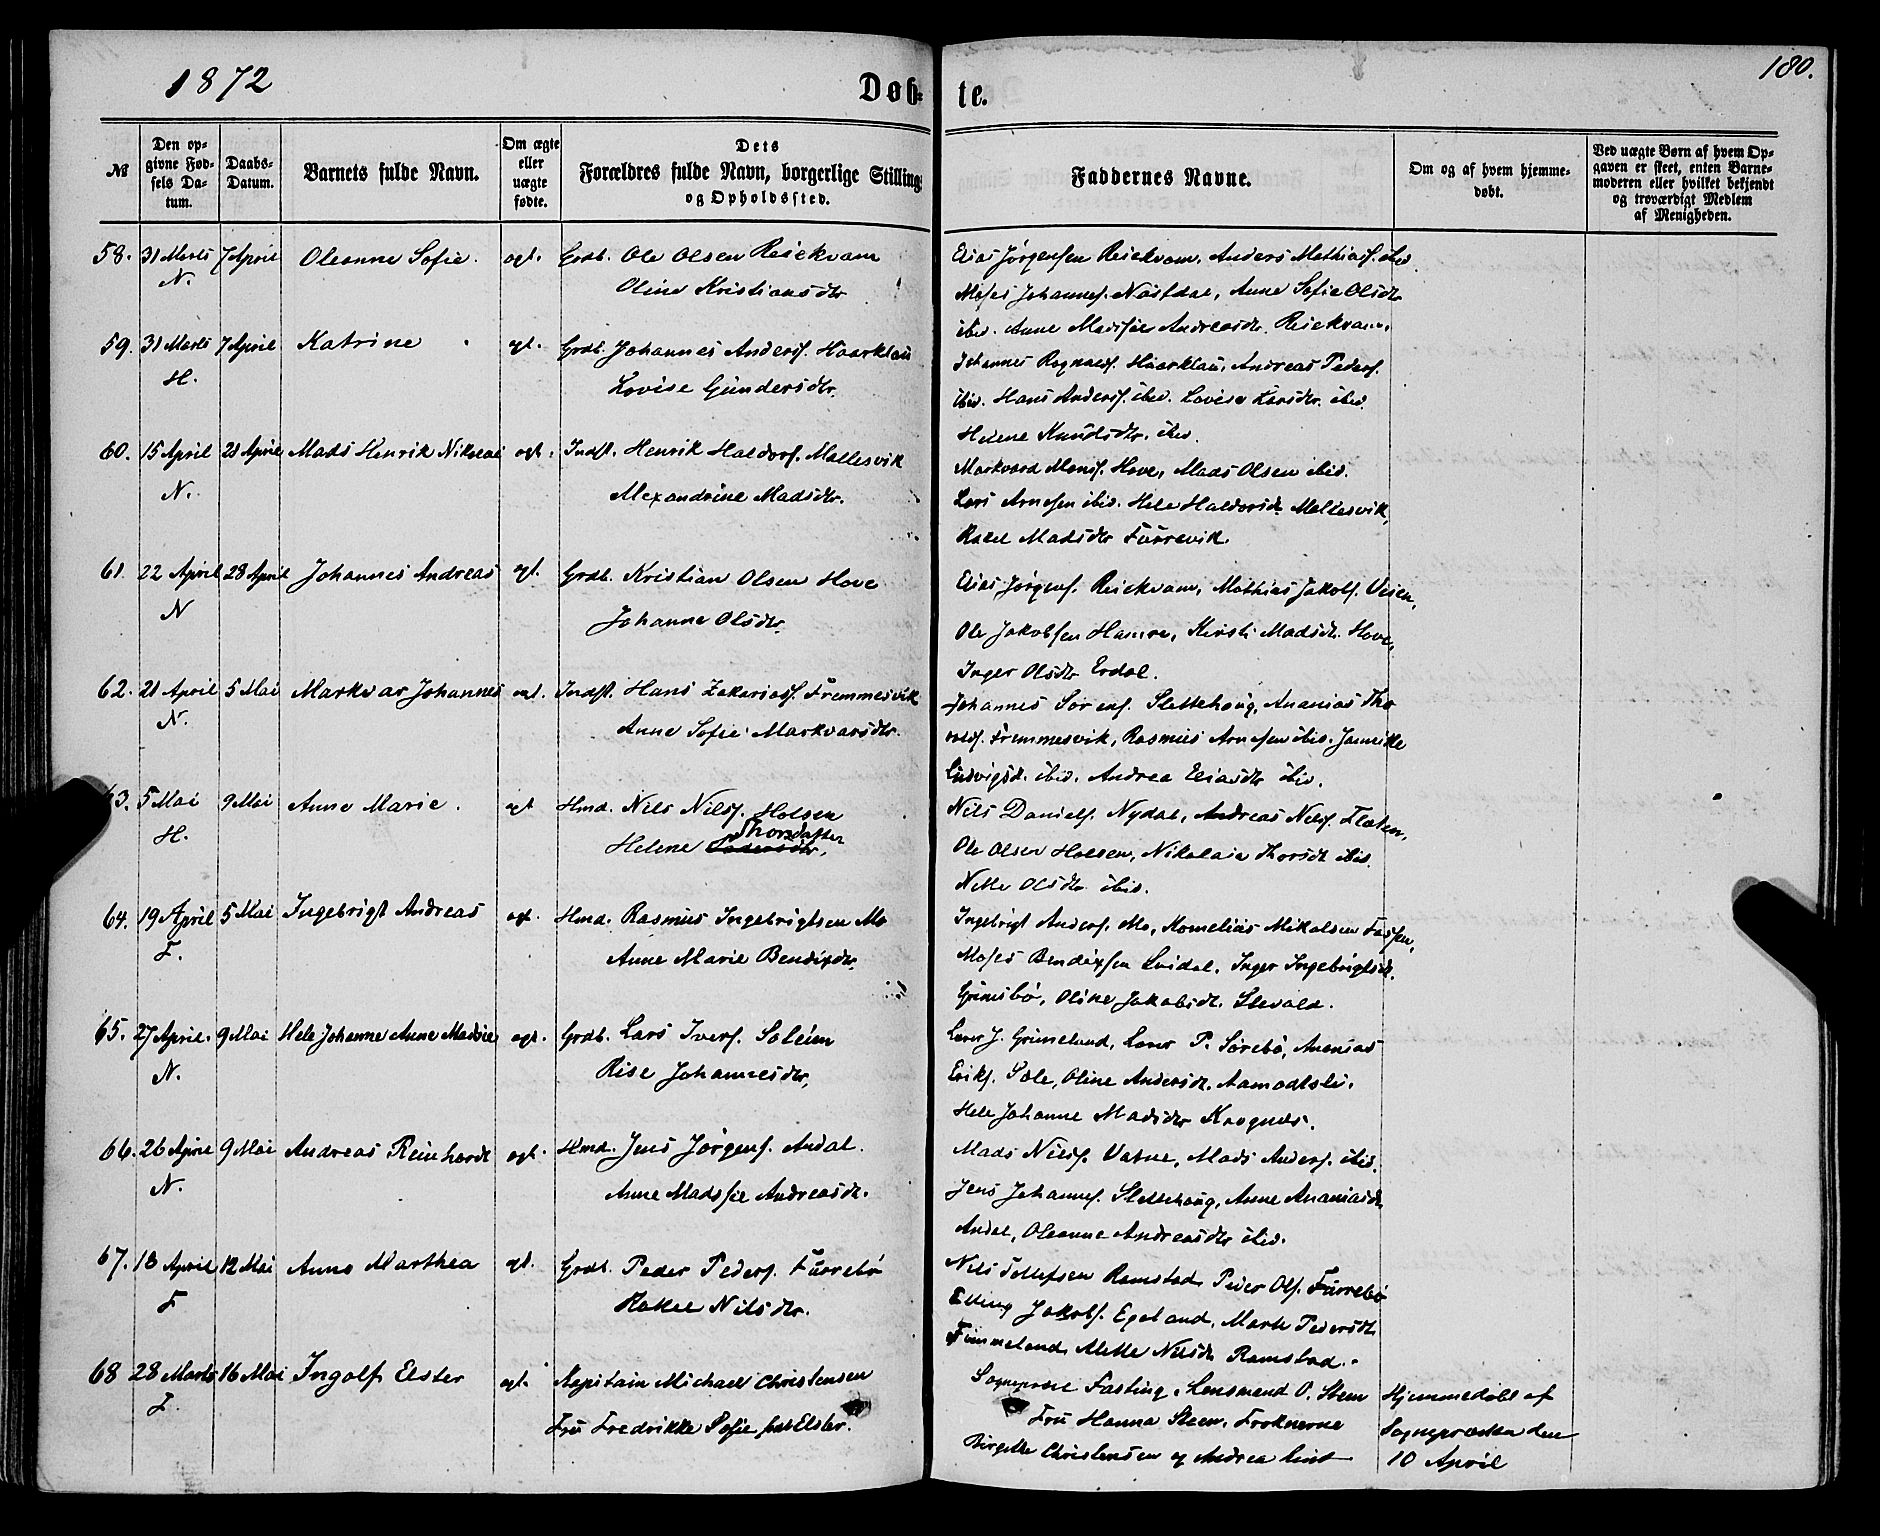 1872
Døb-
te.
180.
№
Den op-
givne Fød-
sels Da-
tum.
Daabs-
Datum.
Barnets fulde Navn.
Om ægte
eller
uægte
fødte.
Dets
Forældres fulde Navn, borgerlige Stilling
og Opholdssted.
Faddernes Navne.
Om og af hvem hjemme-
døbt.
Ved uægte Børn af hvem Op-
gaven er skeet, enten Barne-
moderen eller hvilket bekjendt
og troværdigt Medlem
af Menigheden.
58. 31 Marts 7 April Oleanne Sofie. ægt. Grdb. Ole Olsen Reiekvam
N. Oline Kristiansdtr
Elias Jørgensen Reiekvam, Anders Mathiass. ibid
Moses Johanness. Nastdal, Anne Sofie Olsdtr
ibid. Anne Madsfie Andreasdtr. Reiekvam.
59. 31 Marts 7 April Katrine ægt. Grdb. Johannes Anderss. Haarklau
H. Lovise Gundersdtr.
Johannes Ragnalds. Haarklau, Andreas Peders.
ibid. Hans Anderss. ibid. Lovise Larsdtr. ibid.
Helene Knudsdtr. ibid.
60. 15 April 21 April Mads Henrik Nikolai ægt. Indst. Henrik Haldors. Mollesvik
N. Alexandrine Madsdtr.
Markvard Monss. Hove, Mads Olsen ibid.
Lars Arnesen ibid. Hele Haldorsdtr Mollesvik,
Rakel Madsdtr Furrevik.
61. 22 April 28 April Johannes Andreas ægt. Grdb. Kristian Olsen Hove
N Johanne Olsdtr.
Elias Jørgens. Reiekvam, Mathias Jakobs. Veien,
Ole Jakobsen Hamre, Kirsti Madsdtr. Hove,
Inger Olsdtr Erdal.
62. 21 April 5 Mai Markvar Johannes ægt. Indst. Hans Zakariass. Fremmesvik
N. Anne Sofie Markvarsdtr.
Johannes Sørens. Slettehoug, Ananias Tho
Fremmesvik, Rasmus Arnesen ibid. Jannikke
Ludvigsd. ibid. Andrea Eliasdtr ibid.
63. 5 Mai 9 Mai Anne Marie. ægt Hmd. Nils Nilss. Holsen
H. Helene Thorsdatter
Nils Daniels. Nydal, Andreas Nilss. Flaten,
Ole Olsen Holsen, Nikolaia Thorsdt ibid.
Nille Olsdtr ibid.
64. 19 April 5 Mai Ingebrigt Andreas ægt. Hmd. Rasmus Ingebrigtsen Mo
F. Anne Marie Bendixdtr.
Ingebrigt Anders. Mo, Kornelius Mikalsen
Moses Bendixsen Lvidal, Inger Ingebrigtsdt.
Grimsbø, Oline Jakobsdt.
65. 27 April. 9 Mai Hele Johanne Anne Madsie ægt. Grdb. Lars Ivers. Soleim
N. Rise Johannesdtr,
Lars J. Grimeland, Lars P. Sørebø, Ananias
Eriks. Sole, Oline Andersdt. Aamodtslie.
Hele Johanne Madsdtr
66. 26 April 9 Mai Andreas Reinhardt ægt. Hmd. Jens Jørgens. Andal.
N. Anne Madssie Andreasdt.
Mads Nilss. Vatne, Mads Anders. ibid.
Jens Johanness. Slettehoug, Anne Ananiasdt
Andal, Oleanne Andreasdtr ibid.
67. 18 April 12 Mai Anne Marthea ægt. Grdb. Peder Peders. Furrebø
F Rakel Nilsdtr.
Nils Tollefsen Ramstad, Peder Ols. Furrebø
Elling Jakobs. Egeland, Marte Pedersdt.
Timmeland, Alette Nilsdt. Ramstad.
68 28 Marts 16 Mai Ingolf Elster ægt. Kapitain Michael Christensen
F. Fru Fredrikke Sofie født Elster.
Sognepræst Fasting, Lensmand O. Steen
Fru Hanna Steen, Frøknerne
Birgitte Christensen og Andrea Lind
Hjemmedøbt af
Sognepræsten den
10 April